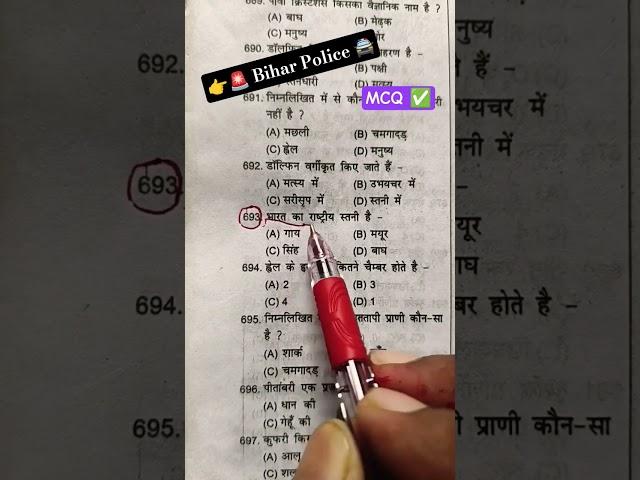 689. पावो क्रिस्टेटस किसका वैज्ञानिक नाम है ?
(A) बाघ (B) मेढ़क
(C) मनुष्य
690. डॉलफिन है -
👉🚨 Bihar Police 🚔
(B) पक्षी
691. निम्नलिखित में से
MCQ ✅
नहीं है ?
(A) मछली (B) चमगादड़
(C) ह्वेल (D) मनुष्य
692. डॉल्फिन वर्गीकृत किए जाते हैं -
(A) मत्स्य में (B) उभयचर में
(C) सरीसृप में (D) स्तनी में
693. भारत का राष्ट्रीय स्तनी है -
(A) गाय (B) मयूर
(C) सिंह (D) बाघ
694. ह्वेल के कितने चैम्बर होते है -
(A) 2 (B) 3
(C) 4 (D) 1
695. निम्नलिखित प्राणी कौन-सा
है ?
(A) शार्क
(C) चमगादड़
696. पीतांबरी एक
(A) धान की
(C) गेहूँ की
697. कुफरी
(A) आलू
(C)
692.
हैं -
उभयचर में
स्तनी में
693
694.
होते है -
695.
प्राणी कौन-सा